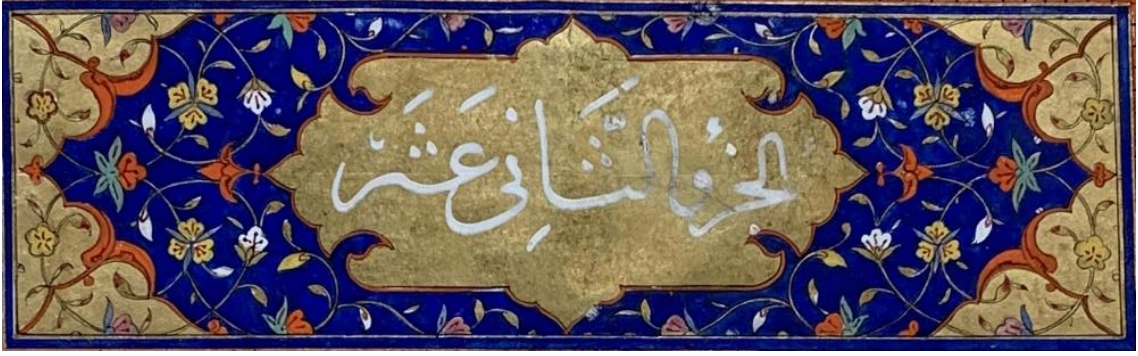 الجزؤ الثَّانِي عَشَر